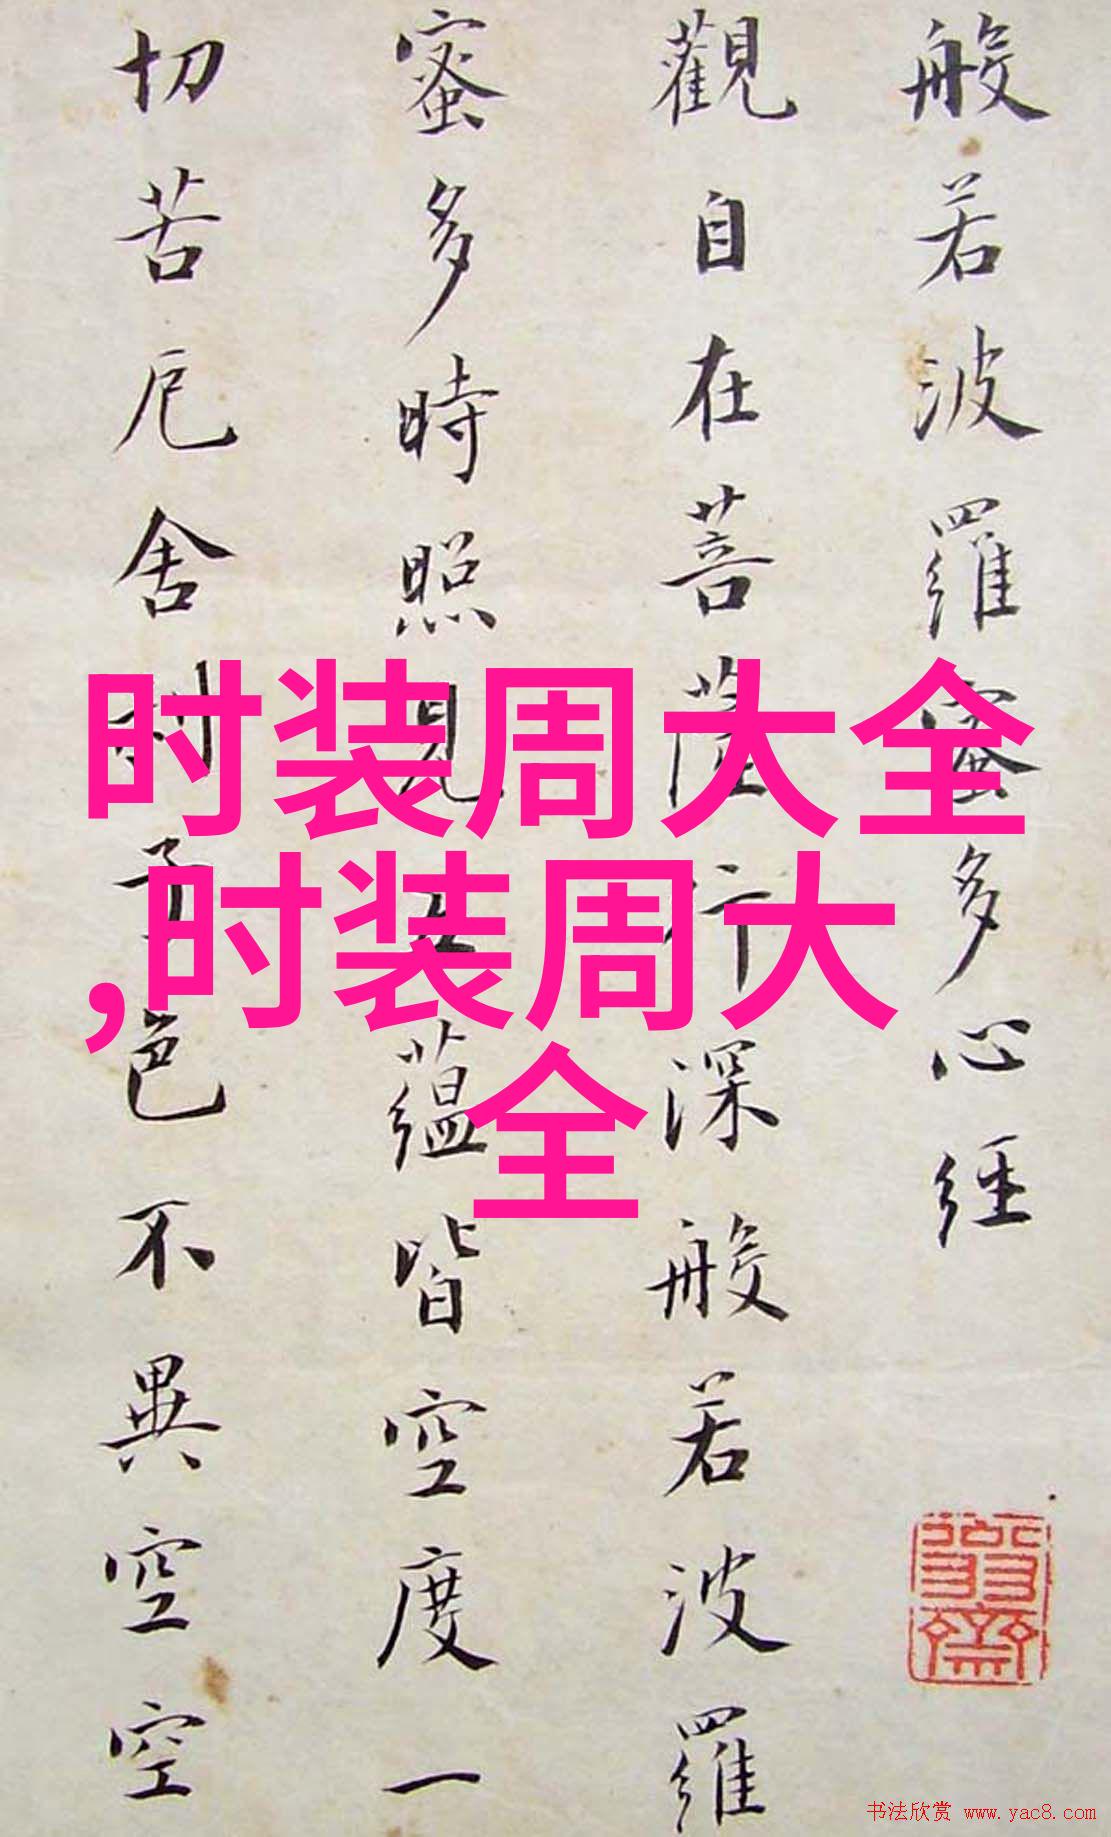 般若波羅蜜多心經
觀自在菩薩行深般若波羅
蜜多時照見五蘊皆空度一
切苦厄舍利子色不異空空
时装周大全
,时装周大
全
书法欣赏 www.yac8.com